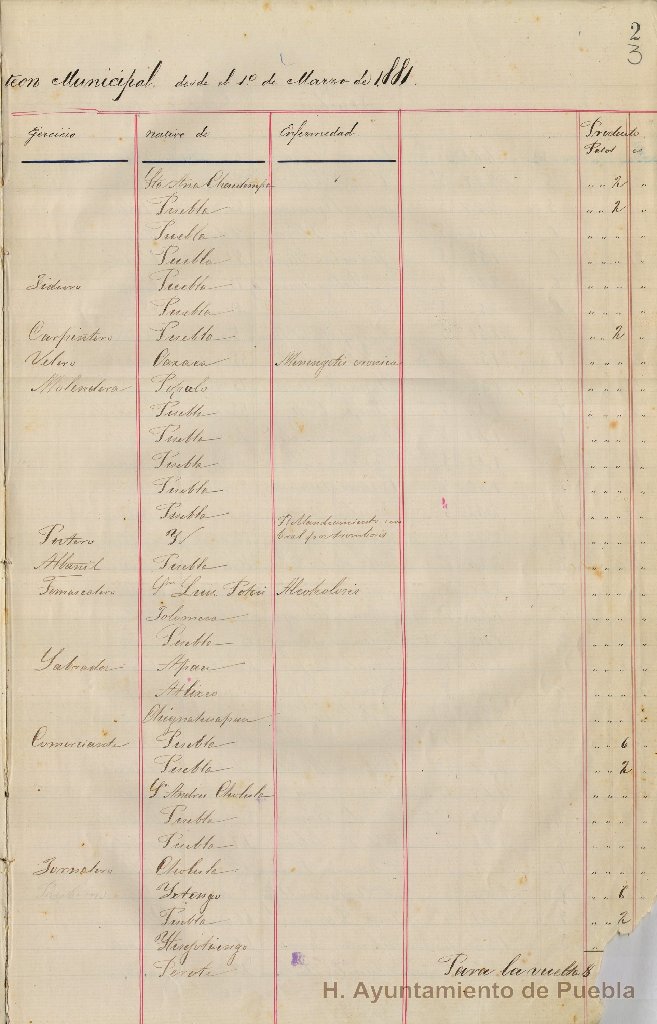 2
3
teon Municipal, desde el 1º de Marzo de 1881.
Ejercicio nativo de Enfermedad Producto
Pesos cs
Sta Ana Chautempa " " 2 "
Puebla " " 2 "
Puebla " " " "
Puebla " " " "
Puebla " " " "
Puebla " " " "
Carpintero Puebla " " 2 "
Velero Oaxaca Meningitis cronica " " " "
Molendera " " " "
Puebla " " " "
Puebla " " " "
Puebla " " " "
Puebla " " " "
Puebla " " " "
Reblandecimiento
Pintero Y " " " "
Albañil Puebla " " " "
San Luis Potosi Alcoholisis " " " "
" " " "
Puebla " " " "
Labrador Apan " " " "
Atlixco " " " "
Chignahuapan " " " "
Comerciante Puebla " " 6 "
Puebla " " 2 "
Sn Andres Cholula " " " "
Puebla " " " "
Puebla " " " "
Jornalero Cholula " " " "
" " 6 "
Puebla " " 2 "
Huejotzingo "
Perote Para la vuelta 8
H. Ayuntamiento de Puebla